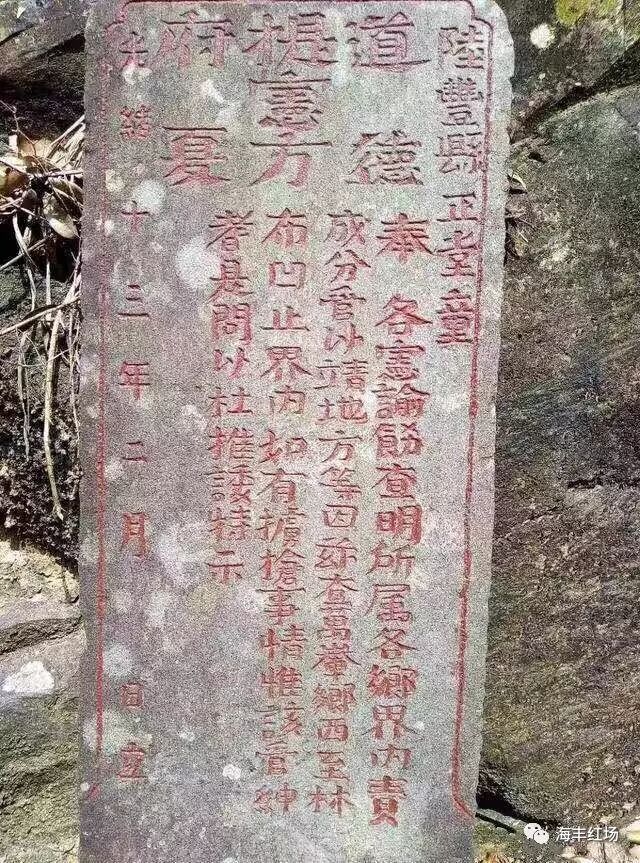 陸豐縣正堂童
道德
提憲方
府夏
奉各憲諭飭查明所属各鄉界內責
成分管以靖地方等因茲查萬輋鄉西至林
布凹止界內如有擄搶事情惟該管紳
耆是問以杜推諉特示
光緒十三年二月 日立
海丰红场